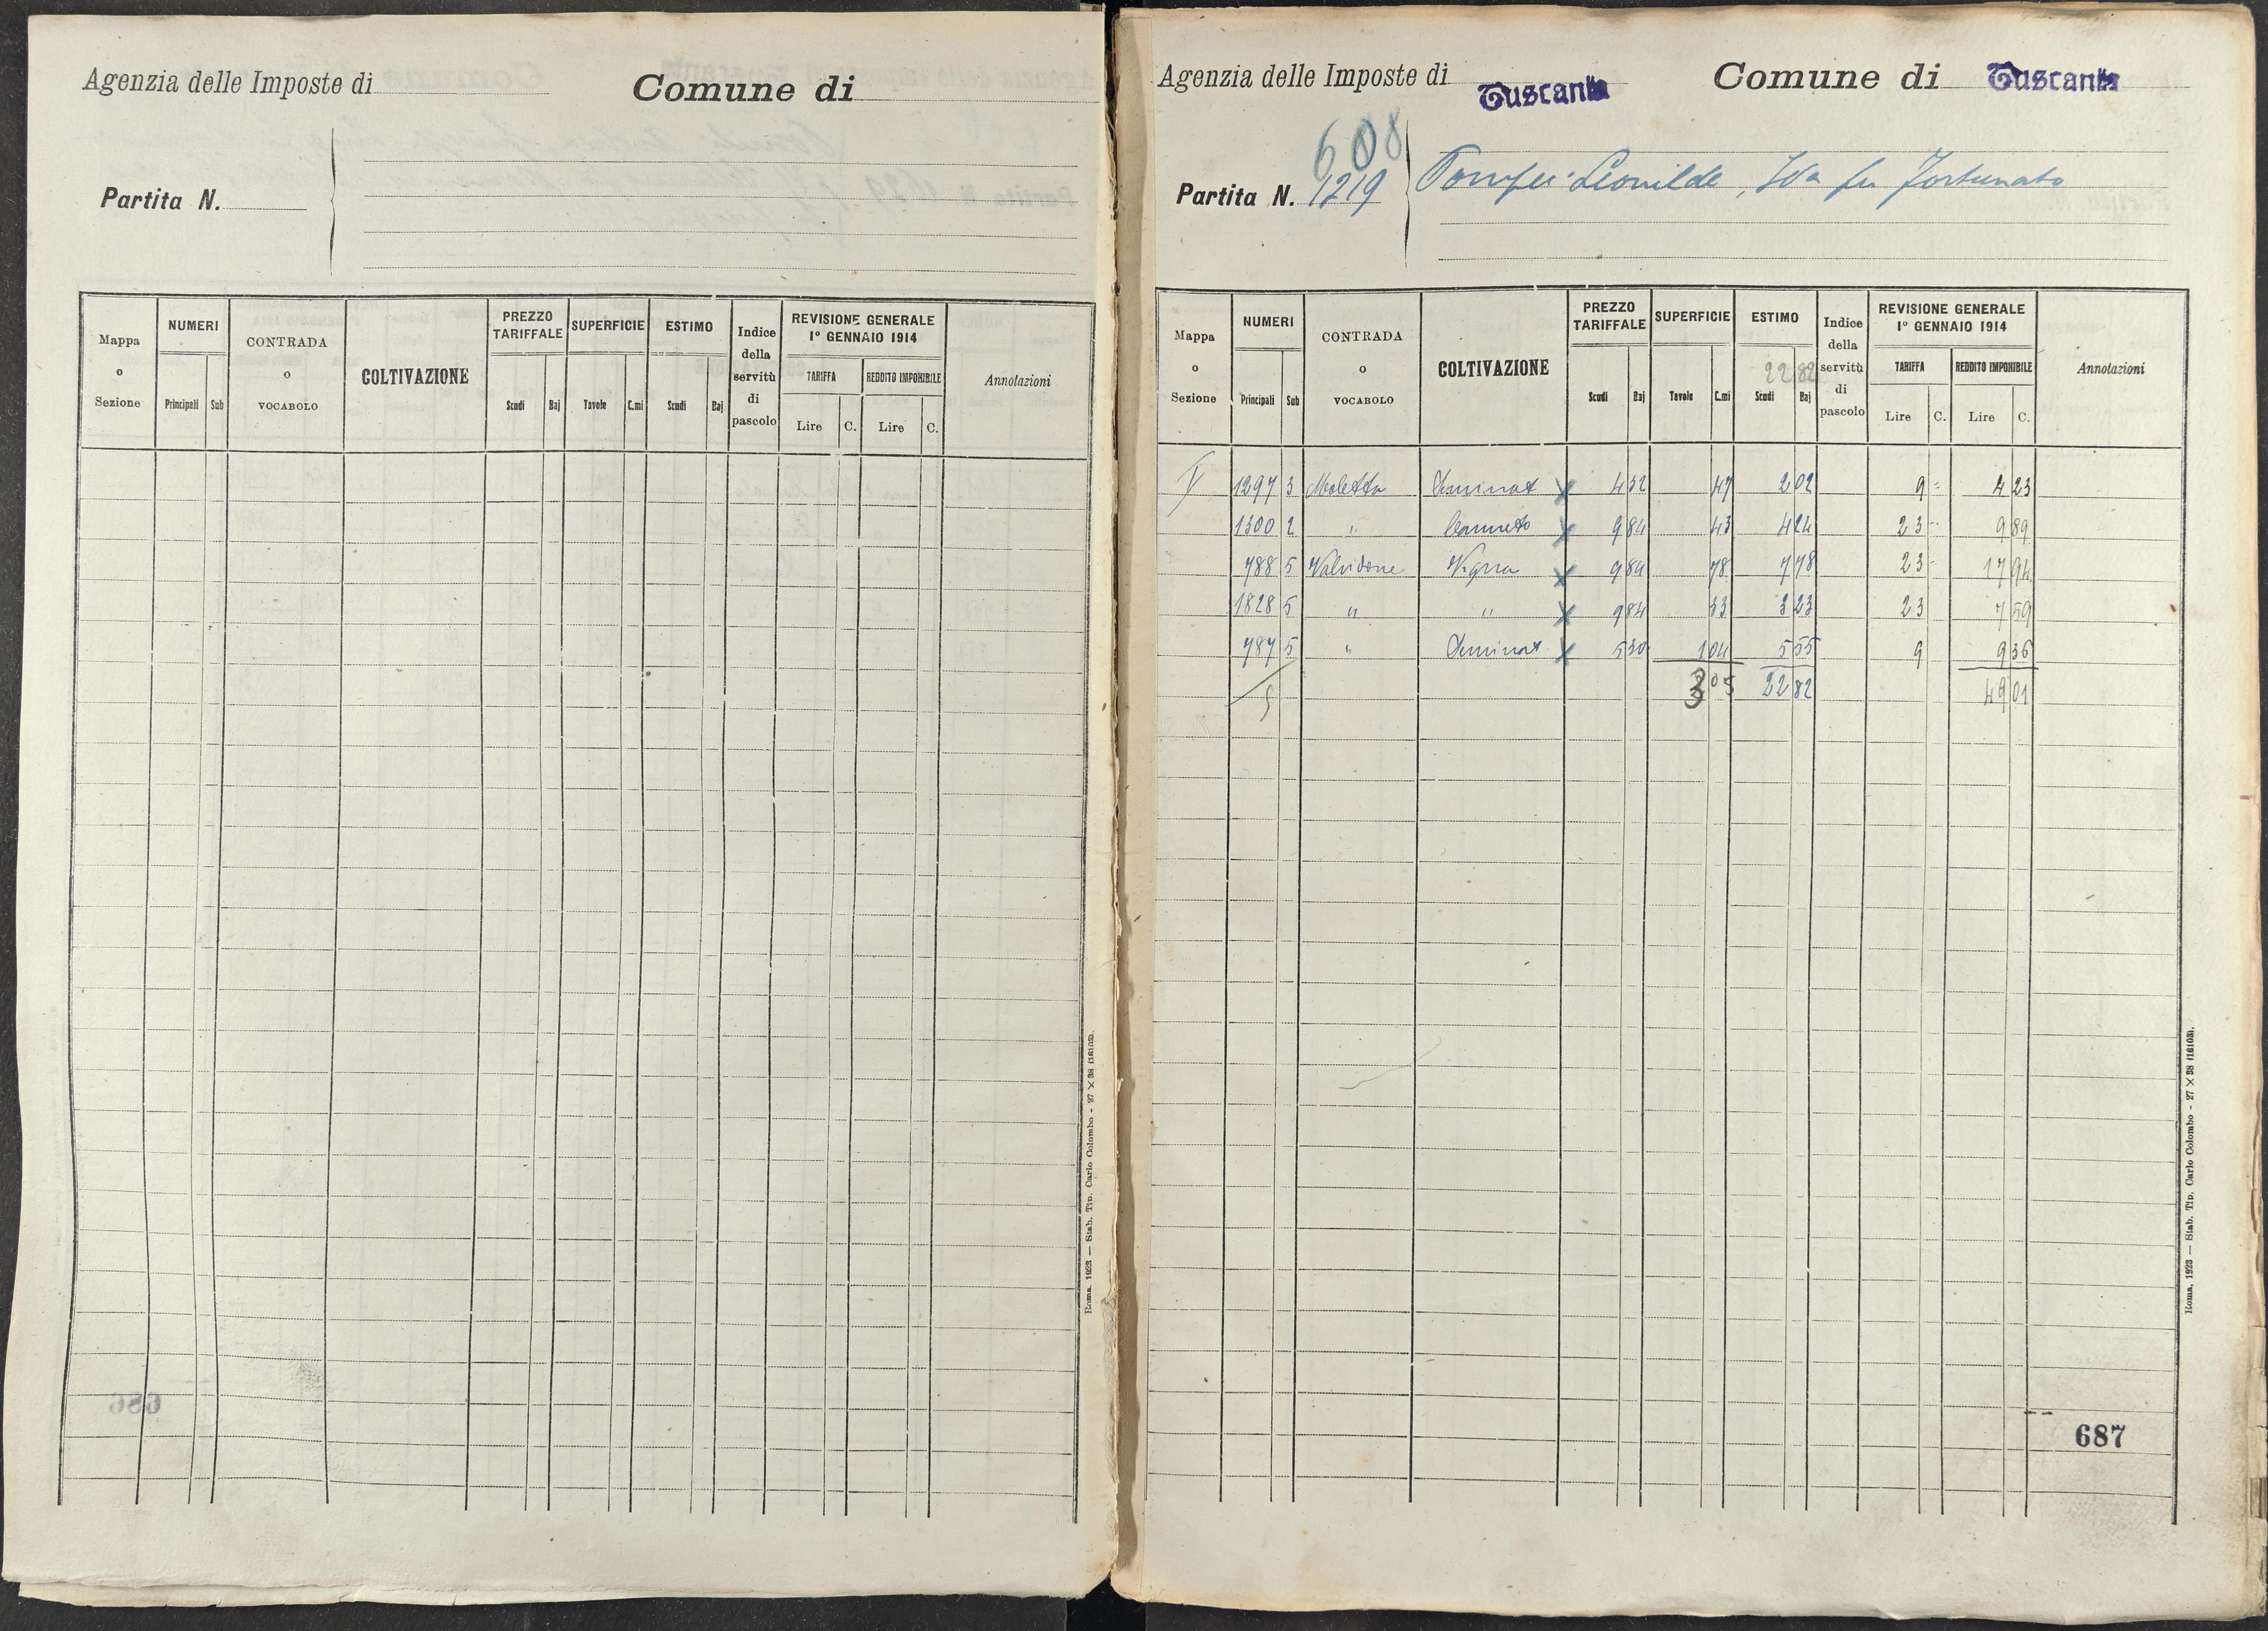 Agenzia delle Imposte di
Comune di
Partita N.
Mappa o Sezione
NUMERI
Principali Sub
CONTRADA o VOCABOLO
COLTIVAZIONE
PREZZO TARIFFALE
Scudi Baj
SUPERFICIE
Tavole C.mi
ESTIMO
Scudi Baj
Indice della servitù di pascolo
REVISIONE GENERALE 1° GENNAIO 1914
TARIFFA
Lire C.
REDDITO IMPONIBILE
Lire C.
Annotazioni
Roma, 1923 — Stab. Tip. Carlo Colombo - 27 × 38 (16103).
686
Agenzia delle Imposte di Tuscania
Comune di Tuscania
608
Partita N. 1219
Pompei Leonilde, Ida fu Fortunato
Mappa o Sezione
NUMERI
Principali Sub
CONTRADA o VOCABOLO
COLTIVAZIONE
PREZZO TARIFFALE
Scudi Baj
SUPERFICIE
Tavole C.mi
ESTIMO
22 82
Scudi Baj
Indice della servitù di pascolo
REVISIONE GENERALE 1° GENNAIO 1914
TARIFFA
Lire C.
REDDITO IMPONIBILE
Lire C.
Annotazioni
V 1297 3 Seminat x 4 32 47 2 02 9 = 4 23
1300 2 " Canneto x 9 84 43 4 24 23 - 9 89
788 5 Valvidone Vigna x 9 84 78 7 78 23 - 17 94
1828 5 " " x 9 84 33 3 23 23 7 59
787 5 " Seminat x 5 30 1 04 5 55 9 9 36
5 3 05 22 82 49 01
Roma, 1923 — Stab. Tip. Carlo Colombo - 27 × 38 (16103).
687